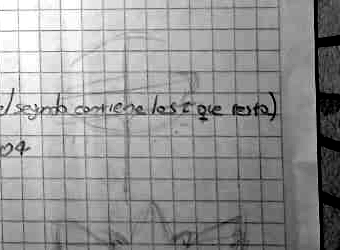 el segundo contiene los t que resta)
04